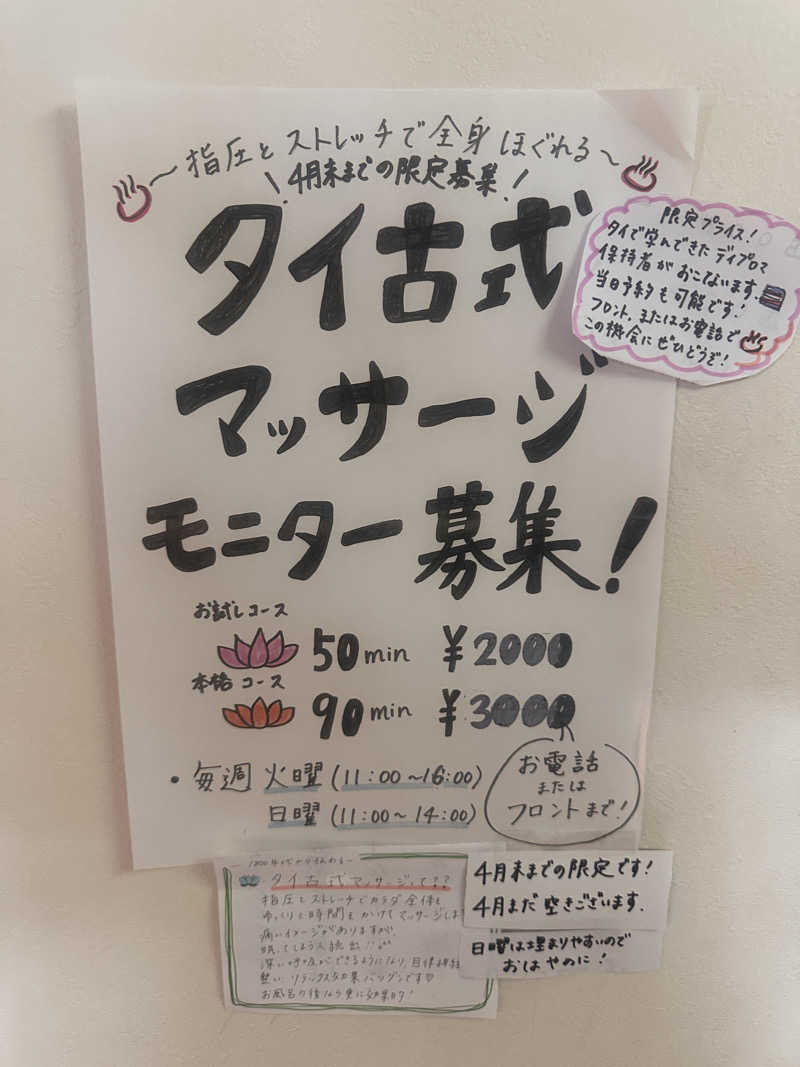 〜指圧とストレッチで全身ほぐれる〜
\4月末までの限定募集!/
タイ古式
マッサージ
モニター募集!
限定プライス!
タイで学んできたディプロマ
保持者がおこないます。
当日予約も可能です!
フロント、またはお電話で
この機会にぜひどうぞ!
お試しコース
50min ¥2000
本格コース
90min ¥3000
・毎週 火曜 (11:00〜16:00)
日曜 (11:00〜14:00)
お電話
または
フロントまで!
タイ古式マッサージって??
指圧とストレッチでカラダ全体を
ゆっくりと時間をかけてマッサージしま
痛いイメージがありますが、
眠ってしまう人続出!!
深い呼吸ができるようになり、自律神経
整い、リラックス効果バツグンです♡
お風呂の後なら更に効果的!
4月末までの限定です!
4月まだ空きございます。
日曜は埋まりやすいので
おはやめに!